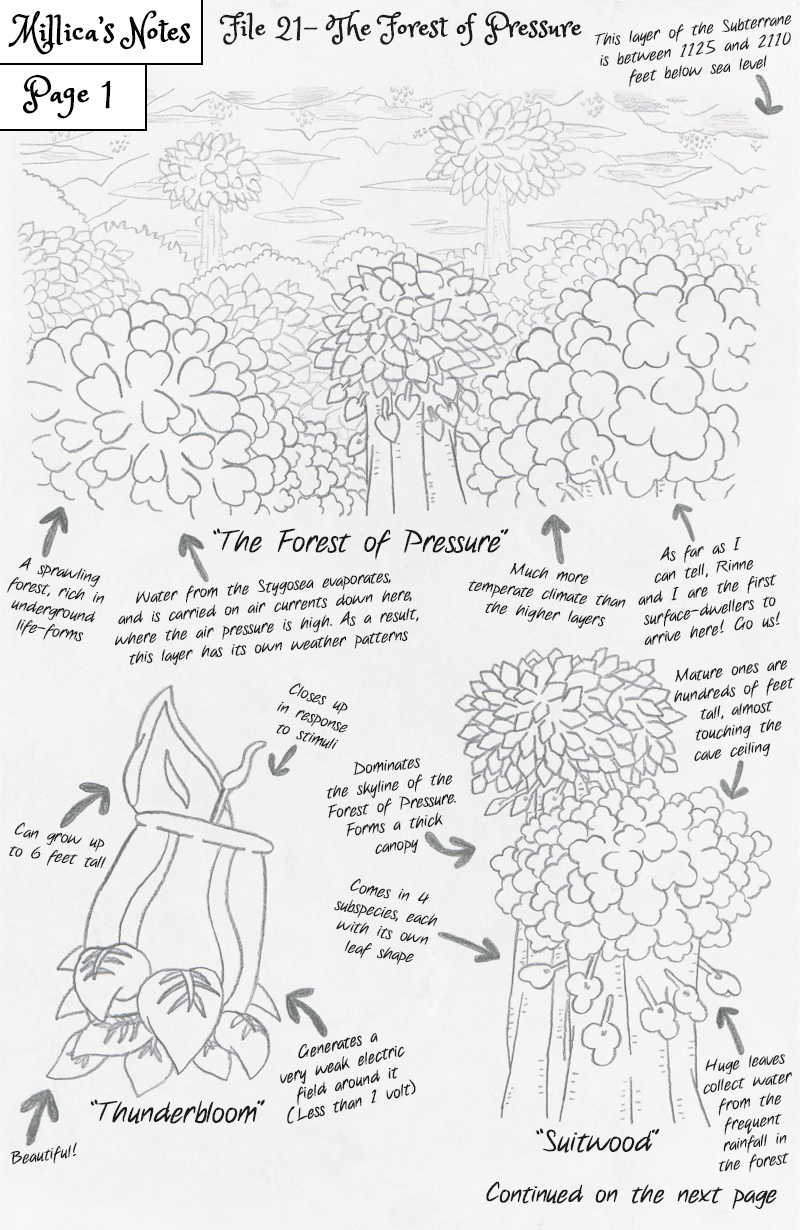 Millica's Notes
File 21- The Forest of Pressure
Page 1
This layer of the Subterrane
is between 1125 and 2110
feet below sea level
"The Forest of Pressure"
A sprawling
forest, rich in
underground
life-forms
Water from the Stygosea evaporates,
and is carried on air currents down here,
where the air pressure is high. As a result,
this layer has its own weather patterns
Much more
temperate climate than
the higher layers
As far as I
can tell, Rinne
and I are the first
surface-dwellers to
arrive here! Go us!
Closes up
in response
to stimuli
Can grow up
to 6 feet tall
Generates a
very weak electric
field around it
(Less than 1 volt)
Beautiful!
"Thunderbloom"
Mature ones are
hundreds of feet
tall, almost
touching the
cave ceiling
Dominates
the skyline of the
Forest of Pressure.
Forms a thick
canopy
Comes in 4
subspecies, each
with its own
leaf shape
Huge leaves
collect water
from the
frequent
rainfall in
the forest
"Suitwood"
Continued on the next page